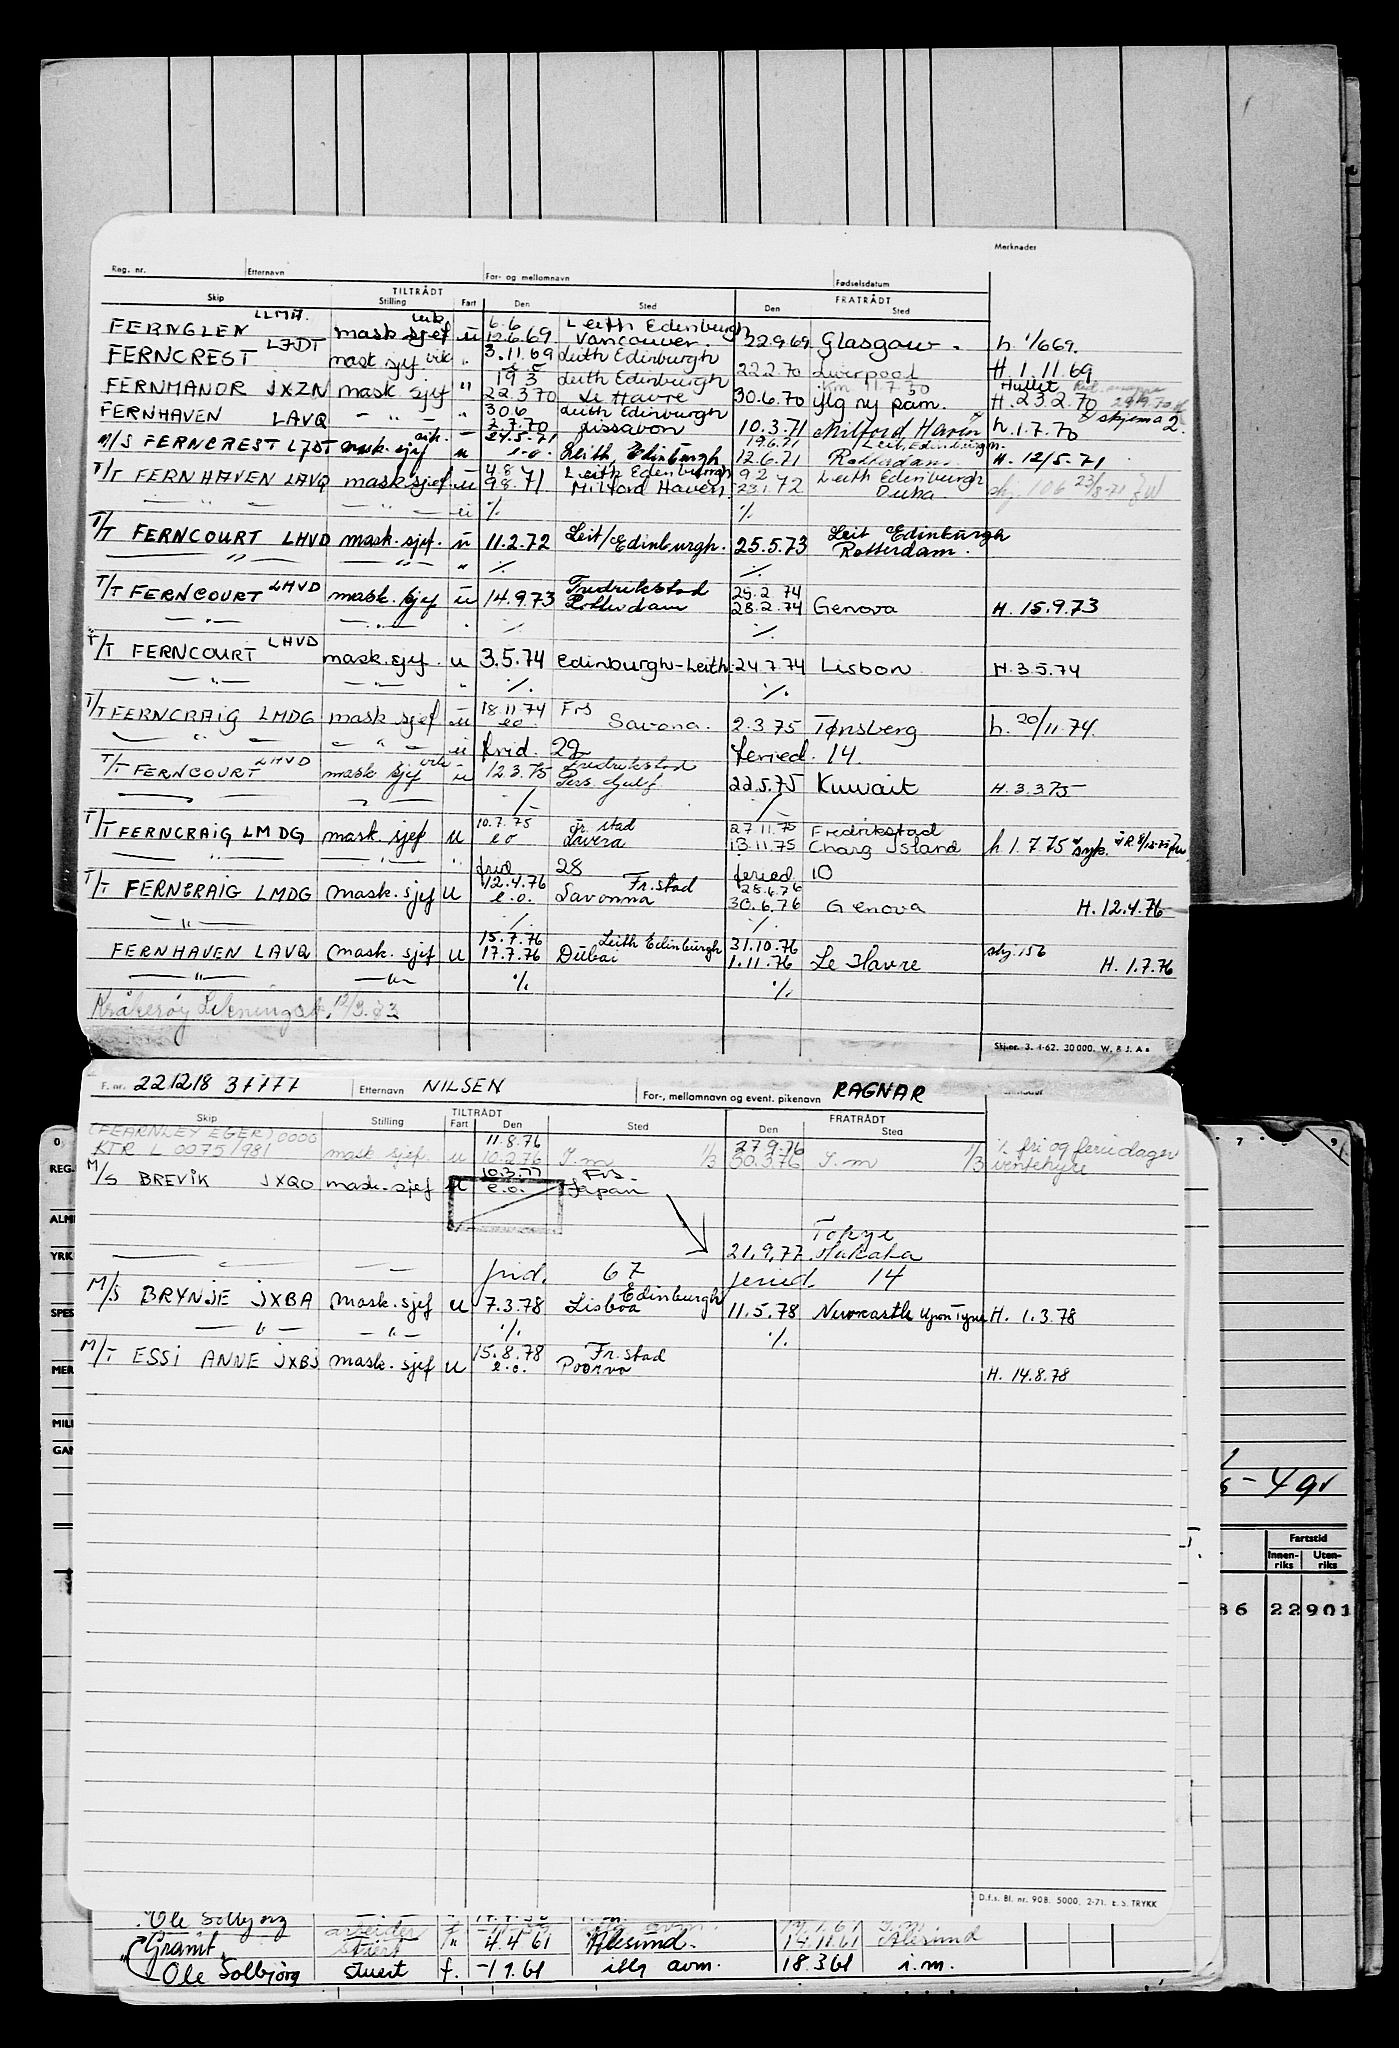 Merknader
Reg. nr. Etternavn For- og mellomnavn Fødselsdatum
TILTRÅDT FRATRÅDT
Skip Stilling Fart Den Sted Den Sted
LLMH. vik. 6.6 Leith Edenburgh
FERNGLEN mask sjef u 12.6.69 Vancouver. 22.9.69 Glasgow. h. 1/669.
FERNCREST L7DT mask sjef vik " 3.11.69 Leith Edinburgh 22.2.70 Liverpool H. 1.11.69
19 3 Leith Edinburgh Hullet
FERNMANOR JXZN mask sjef " 22.3.70 Le Havre 30.6.70 iflg ny påm. H. 23.2.70
30 6 Leith Edinburgh
FERNHAVEN LAVQ — " — " 2.7.70 Lissabon 10.3.71 Milford Haven h. 1.7.70 skjema 2.
vik. 24.5.71 19.6.71 Leit, Edinburgh.
M/S FERNCREST L7DT mask. sjef u e.o. Leith, Edinburgh 12.6.71 Rotterdam. H. 12/5.71
4.8 Leith Edenburgh 9 2 Leith Edenburgh
T/T FERNHAVEN LAVQ mask sjef u 9.8.71 Milford Haven 23.1.72 Duba skj. 106 23/8-71
— " — — " — u % %
Leit Edenburgh
T/T FERNCOURT LHVD mask. sjef. u 11.2.72 Leit/Edinburgh. 25.5.73 Rotterdam.
— " — — " — " % %
LHVD Fredrikstad 25.2 74
T/T FERNCOURT mask. sjef u 14.9.73 Rotterdam 28.2.74 Genova H. 15.9.73
— " — — " — " % %
T/T FERNCOURT LHVD mask. sjef. u 3.5.74 Edinburgh-Leith. 24.7.74 Lisbon H. 3.5.74
— " — — " — " % %
18.11.74 Frs
T/T FERNCRAIG LMDG mask sjef u e.o. Savona. 2.3.75 Tønsberg h. 20/11.74.
— " — — " — u frid. 29 feried. 14.
LHVD vik Fredrikstad
T/T FERNCOURT mask sjef u 12.3.75 Pers. Gulf. 22.5.75 Kuwait H. 3.3.75
— " — — " — % %
10.7.75 Fr. stad 27.11.75 Fredrikstad
T/T FERNCRAIG LMDG mask. sjef u e o Lavera 13.11.75 Charg Island h 1.7.75 syk.
— " — — " — " frid 28 feried 10
12.4.76 Fr. stad 28.6.76
T/T FERNCRAIG LMDG mask. sjef u e.o. Savonna 30.6.76 Genova H. 12.4.76
— " — % %
15.7.76 Leith Edinburgh 31.10.76 skj. 156
FERNHAVEN LAVQ mask. sjef u 17.7.76 Dubai 1.11.76 Le Havre H. 1.7.76
— " — — " — % %
Kråkerøy Likningsk. 12/9.83
Skj.nr. 3. 1-62. 30000. W. B J. A s
F. nr. 221218 37777 Etternavn NILSEN For-, mellomnavn og event. pikenavn RAGNAR
TILTRÅDT FRATRÅDT
Skip Stilling Fart Den Sted Den Sted
(FEARNLEY EGER) 0000 11.8.76 27.9.76 % fri og feriedager
KTR L 0075/981 mask. sjef. u 10.2.76 I.m 1/3 30.3.76 I.m 1/3 ventehyre
10.3.77 Frs.
M/S BREVIK JXQO mask. sjef u e.o. Japan
Tokyo
21.9.77
— " — — " — frid. 67 feried. 14
Edinburgh
M/S BRYNJE JXBA mask. sjef u 7.3.78 Lisboa 11.5.78 Newcastle Upon Tyne H. 1.3.78
— " — — " — % %
15.8.78 Fr. stad
M/T ESSI ANNE JXBJ mask. sjef u e.o. Poorvo H. 14.8.78
D.f.s. Bl. nr. 908. 5000. 2-71. E.S. TRYKK
REG.
ALM
YRK
SPES
MER
MILI
GAN
7 . 9
4 gr
Fartstid
Innen-riks Uten-riks
86 22 901
Ole Solbjørg arbeider
Granit stuert " 4.4 61 Ålesund. 14.11.61 Ålesund
Ole Solbjørg stuert f. -1 9.61 iflg avm. 18.3 61 i.m.